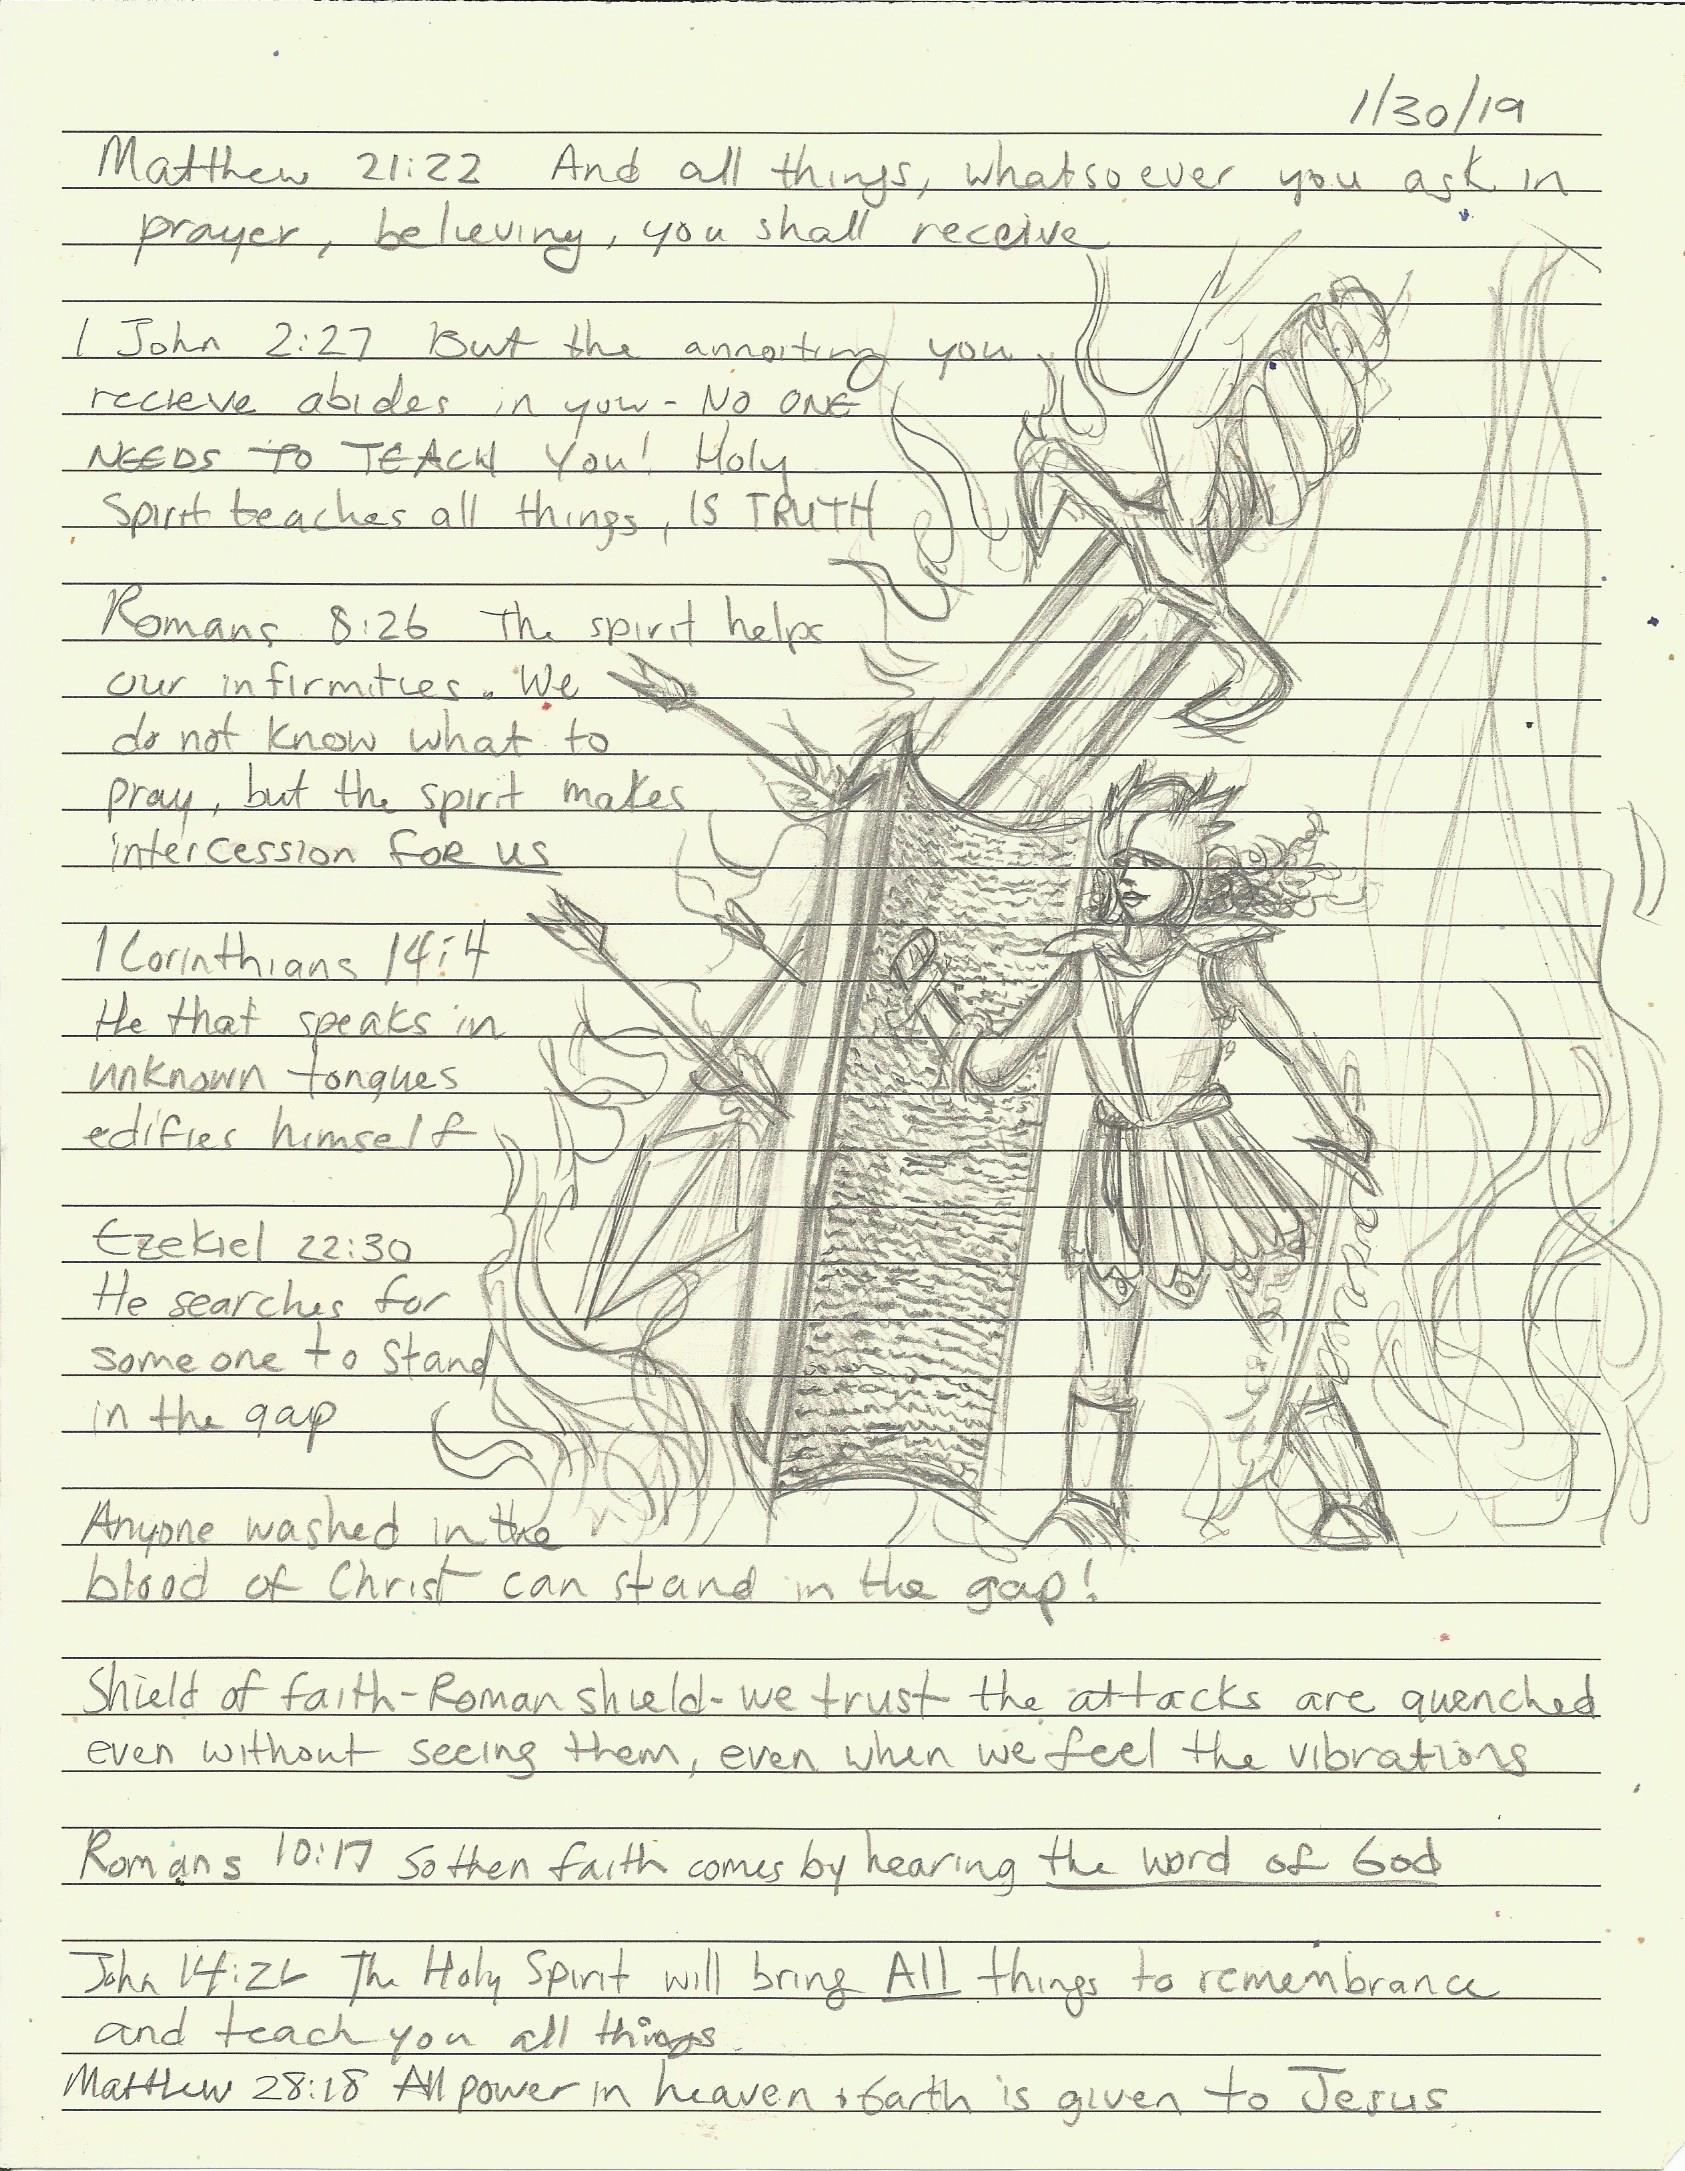 1/30/19
Matthew 21:22 And all things, whatsoever you ask in
prayer, believing, you shall receive
1 John 2:27 But the annoiting you
recieve abides in you - NO ONE
NEEDS TO TEACH YOU! Holy
Spirit teaches all things, IS TRUTH
Romans 8:26 The spirit helps
our infirmities. We
do not know what to
pray, but the spirit makes
intercession FOR US
1 Corinthians 14:4
He that speaks in
unknown tongues
edifies himself
Ezekiel 22:30
He searches for
someone to stand
in the gap
Anyone washed in the
blood of Christ can stand in the gap!
Shield of faith - Roman shield - we trust the attacks are quenched
even without seeing them, even when we feel the vibrations
Romans 10:17 So then faith comes by hearing the word of God
John 14:26 The Holy Spirit will bring All things to remembrance
and teach you all things.
Matthew 28:18 All power in heaven + Earth is given to Jesus